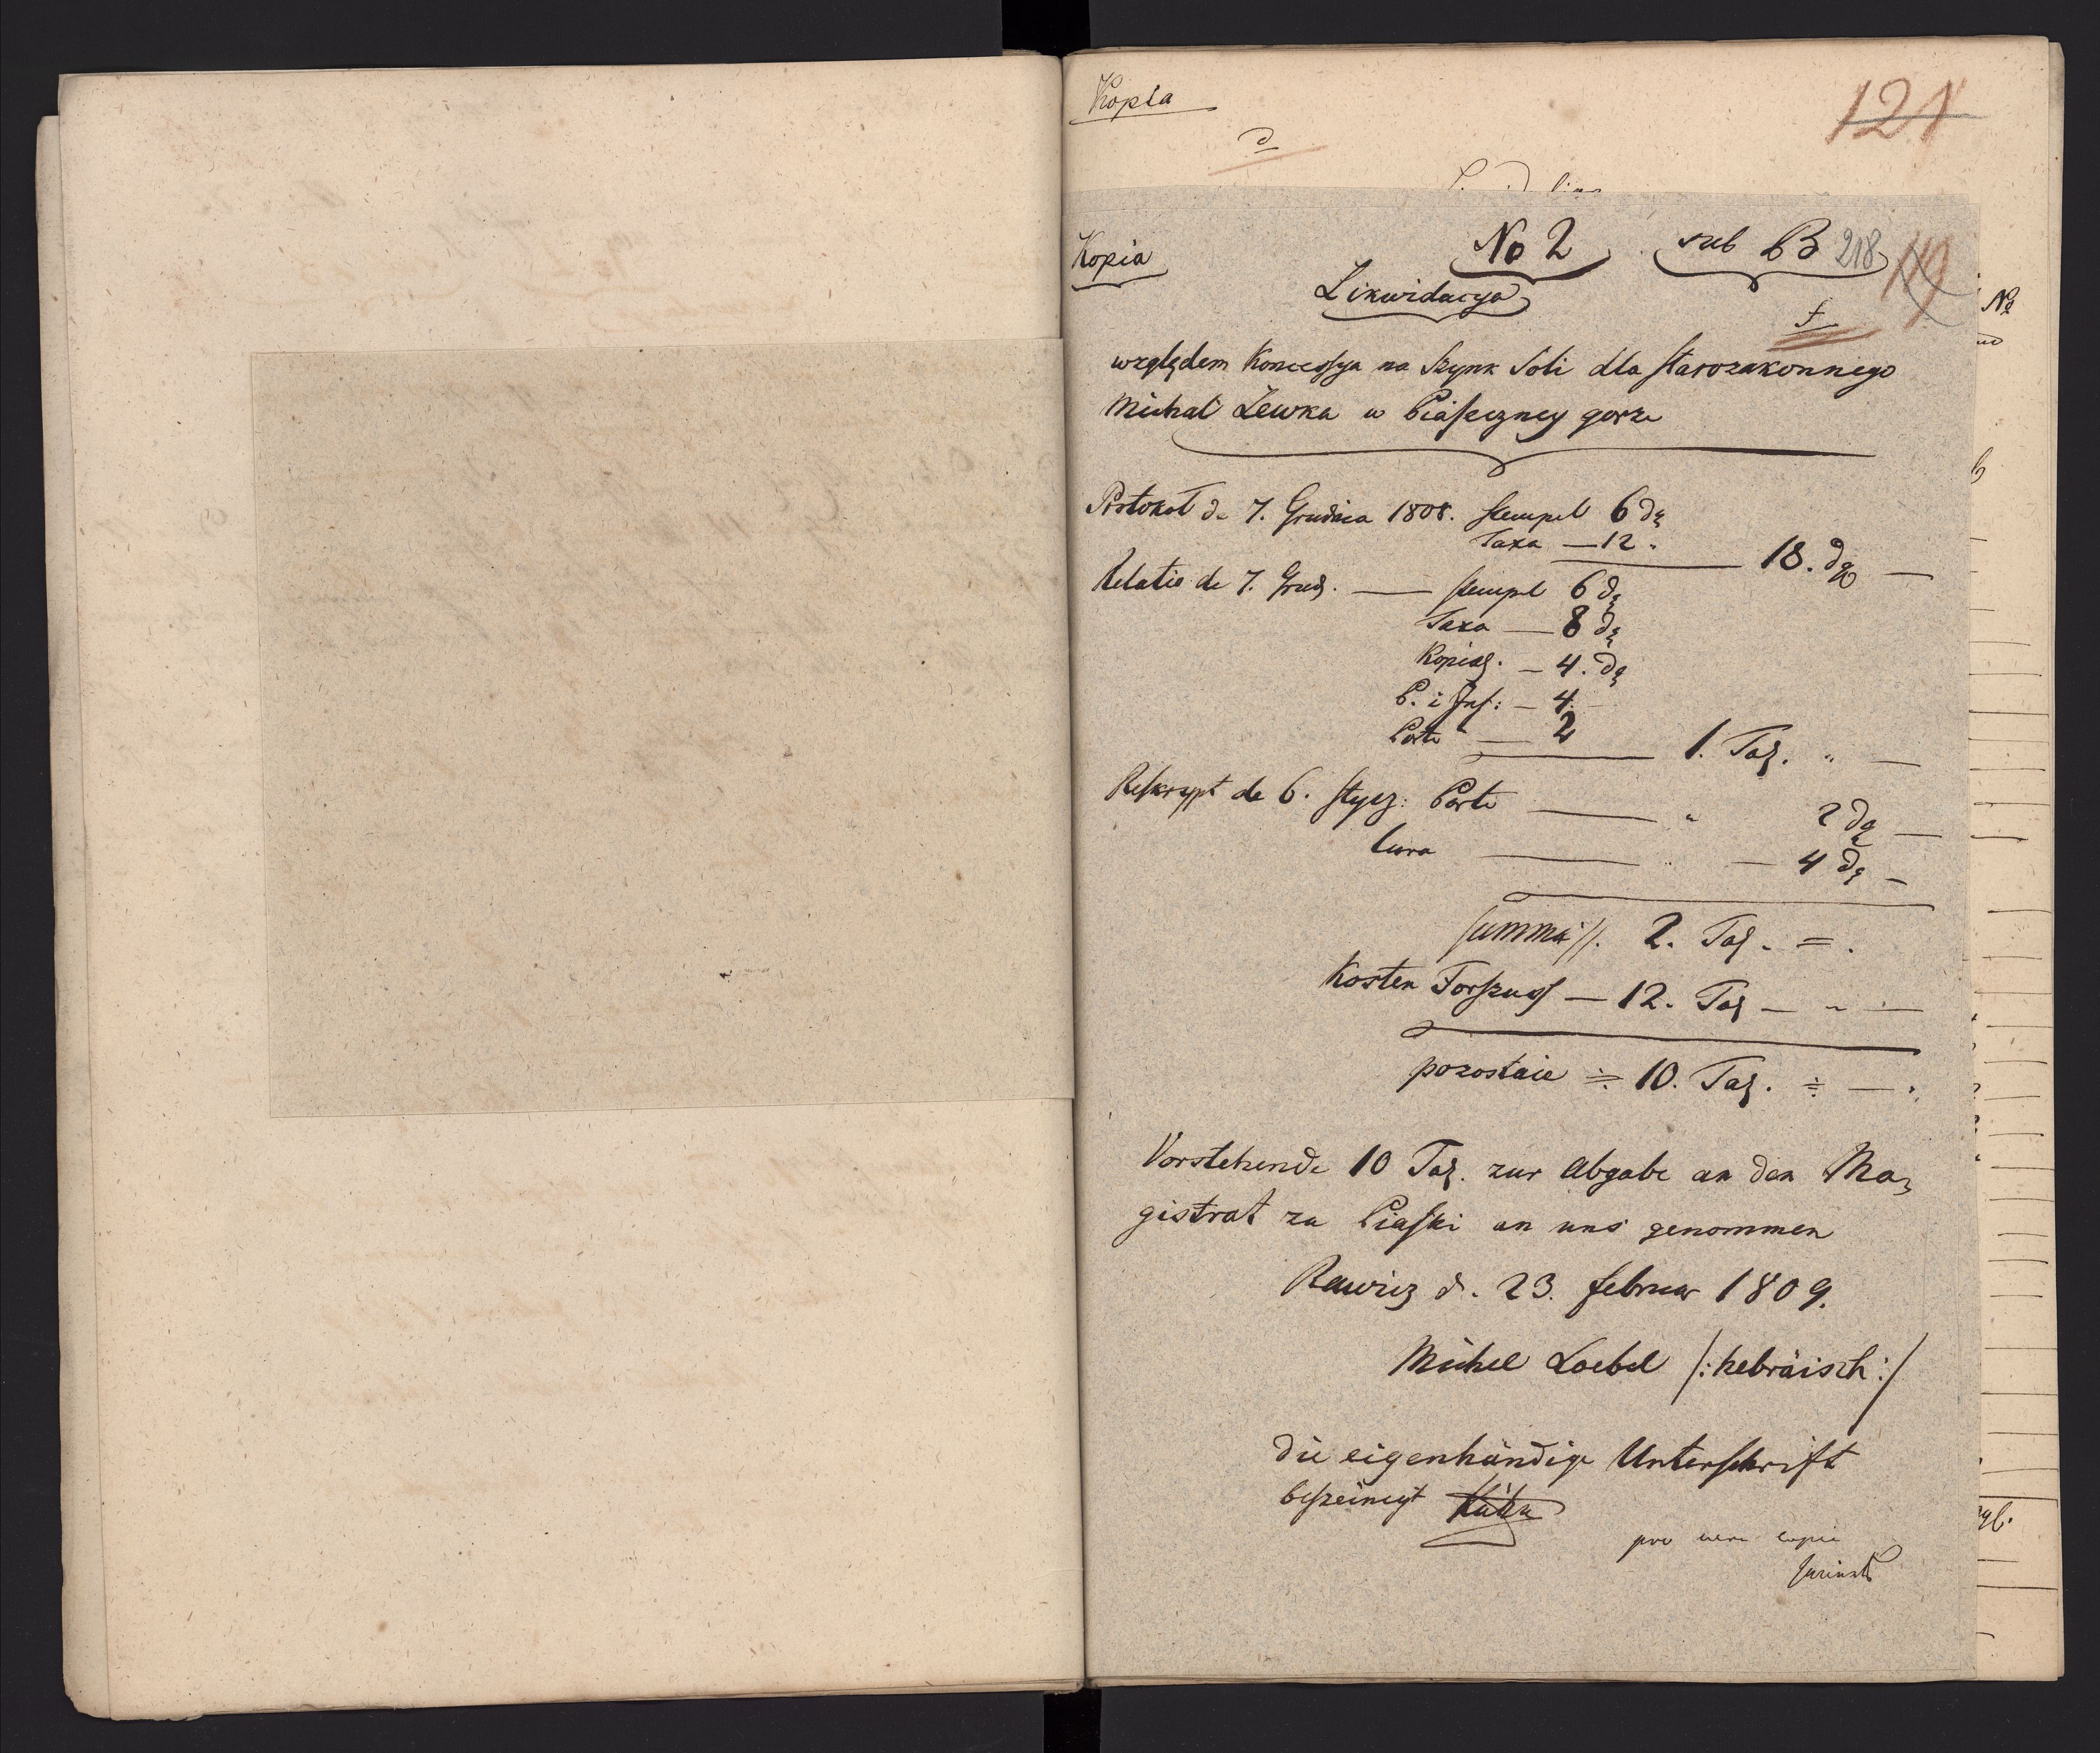 Kopia
121
d
Kopia
No 2
sub B 218
Likwidacya
f
względem Koncessya na Szynk Soli dla starozakonnego
Michał Lewka w Piaseczney gorze
Protokół de 7. Grudnia 1808. stempel 6 dg
Taxa — 12 "
18. dg —
Relatio de 7. Grud. — stempel 6 dg
Taxa — 8 dg
Kopial. — 4. dg
P. i Ins: — 4.
Porto — 2
1. Tal. " —
Reskrypt de 6. stycz: Porto — " 2 dg —
Cura — " — 4 dg —
Summa //. 2. Tal. - = .
Kosten Forszuss — 12. Tal — " —
pozostaie ÷ 10. Tal. ÷ — "
Vorstehende 10 Tal. zur Abgabe an den Ma=
gistrat zu Piaski an uns genommen
Rawicz d. 23. Februar 1809.
Michel Loebel /: hebräisch :/
die eigenhändige Unterschrift
beszeinigt
pro vera copia
No